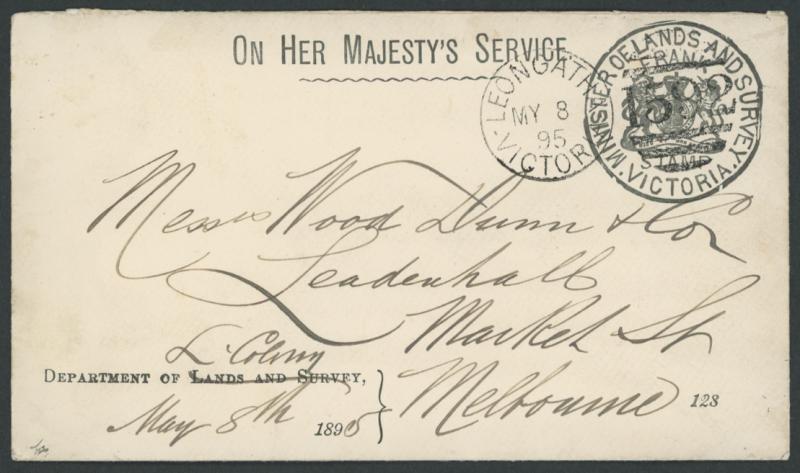 ON HER MAJESTY'S SERVICE
LEONGATHA
MY 8
95
VICTORIA
MINISTER OF LANDS AND SURVEY. VICTORIA.
FRANK
STAMP
Messrs Wood Dunn & Co
Leadenhall
Market St
Melbourne
L. Colony
DEPARTMENT OF LANDS AND SURVEY,
May 8th 1895
128